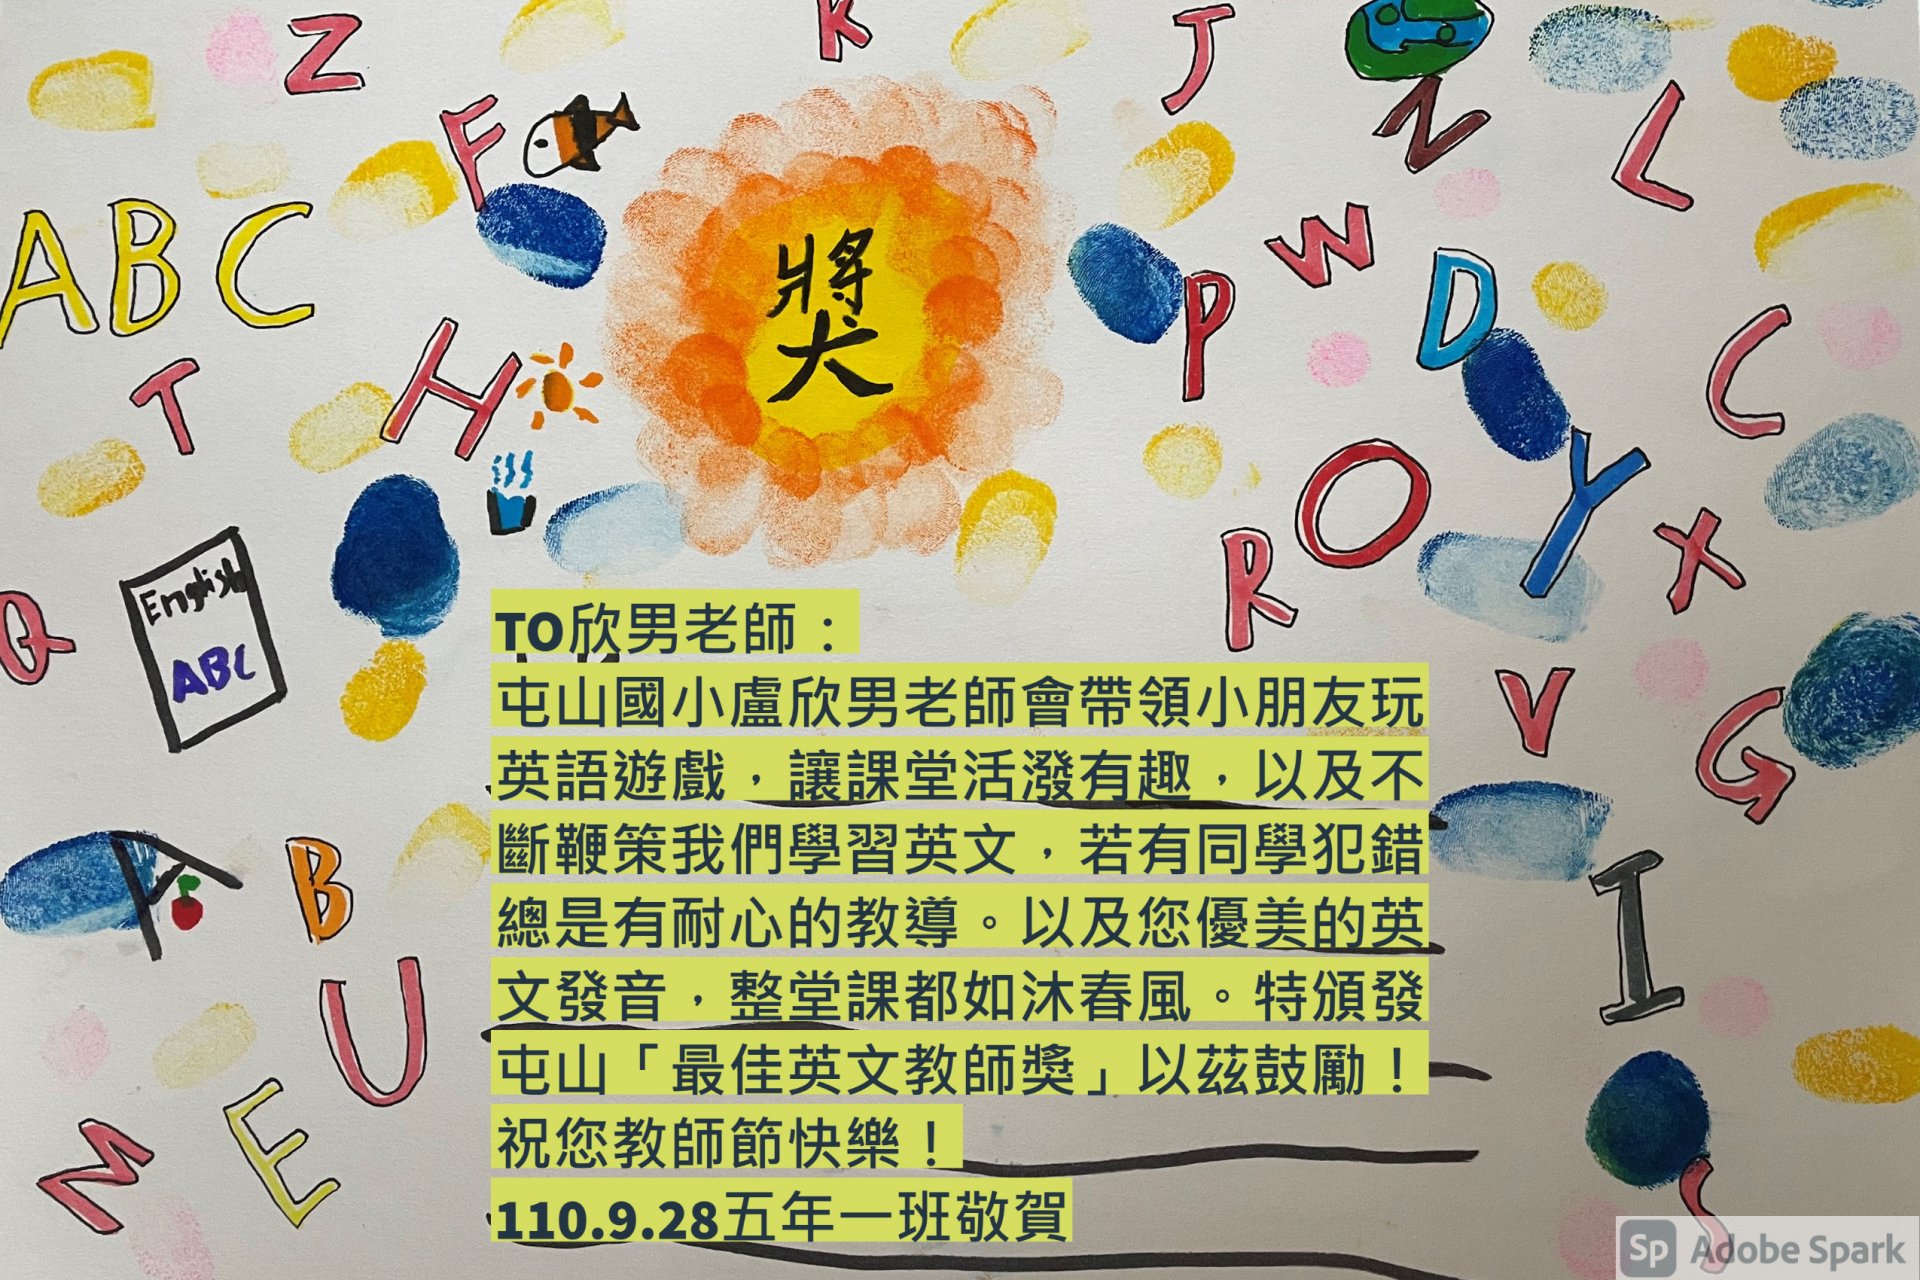 Z
K
J
N
L
F
ABC
獎
W
P
D
C
T
H
O
Y
R
X
English
ABC
Q
TO欣男老師：
屯山國小盧欣男老師會帶領小朋友玩
英語遊戲，讓課堂活潑有趣，以及不
斷鞭策我們學習英文，若有同學犯錯
總是有耐心的教導。以及您優美的英
文發音，整堂課都如沐春風。特頒發
屯山「最佳英文教師獎」以茲鼓勵！
祝您教師節快樂！
110.9.28五年一班敬賀
V
G
A
B
I
U
E
M
Sp Adobe Spark